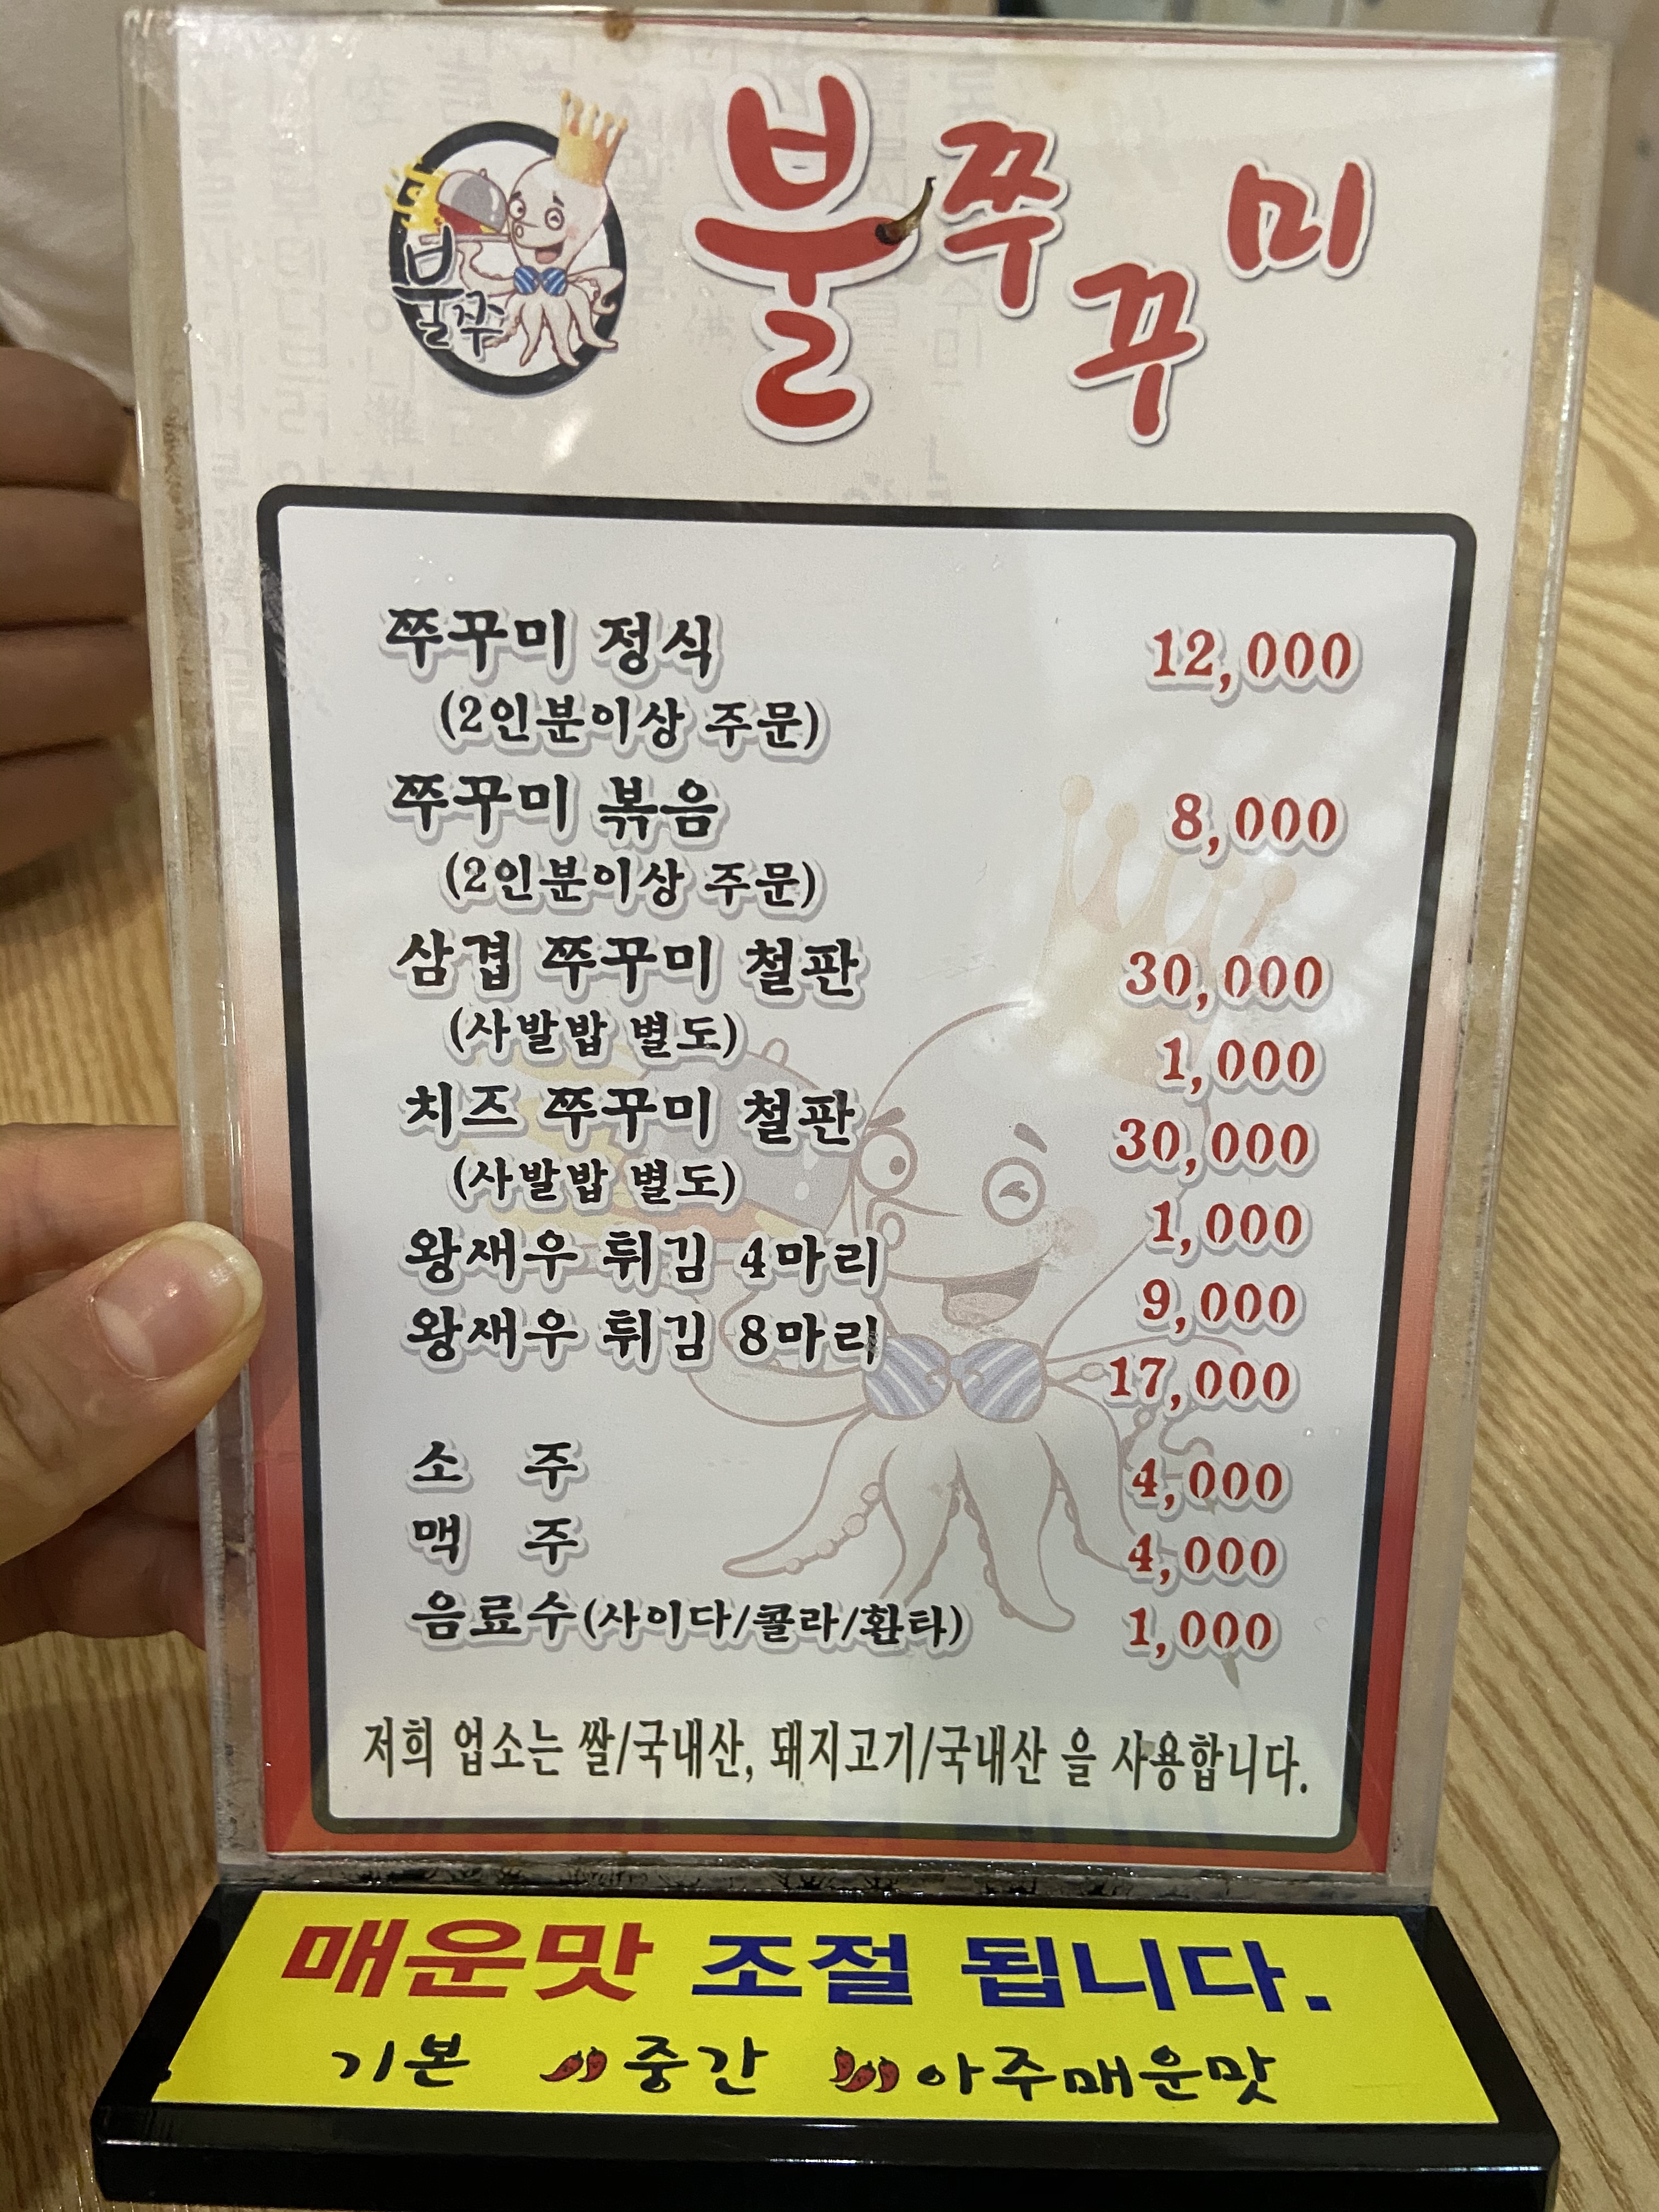 불쭈꾸미
불쭈
쭈꾸미 정식 12,000
(2인분이상 주문)
쭈꾸미 볶음 8,000
(2인분이상 주문)
삼겹 쭈꾸미 철판 30,000
(사발밥 별도) 1,000
치즈 쭈꾸미 철판 30,000
(사발밥 별도) 1,000
왕새우 튀김 4마리 9,000
왕새우 튀김 8마리 17,000
소 주 4,000
맥 주 4,000
음료수(사이다/콜라/환타) 1,000
저희 업소는 쌀/국내산, 돼지고기/국내산 을 사용합니다.
매운맛 조절 됩니다.
기본 중간 아주매운맛